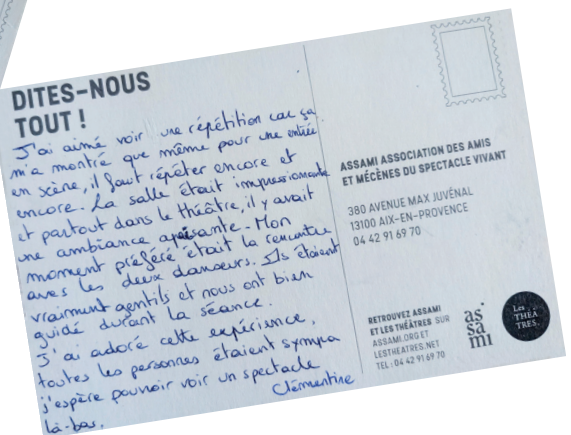 DITES-NOUS
TOUT !
J'ai aimé voir une répétition car ça
m'a montré que même pour une entrée
en scène, il faut répéter encore et
encore. La salle était impressionante
et partout dans le théâtre, il y avait
une ambiance apaisante. Mon
moment préféré était la rencontre
avec les deux danseurs. Ils étaient
vraiment gentils et nous ont bien
guidé durant la séance.
J'ai adoré cette expérience,
toutes les personnes étaient sympa
j'espère pouvoir voir un spectacle
là-bas.
Clémentine
ASSAMI ASSOCIATION DES AMIS
ET MÉCÈNES DU SPECTACLE VIVANT
380 AVENUE MAX JUVÉNAL
13100 AIX-EN-PROVENCE
04 42 91 69 70
RETROUVEZ ASSAMI
ET LES THÉÂTRES SUR
ASSAMI.ORG ET
LESTHEATRES.NET
TEL : 04 42 91 69 70
as
sa
mi
Les
THÉÂ
TRES